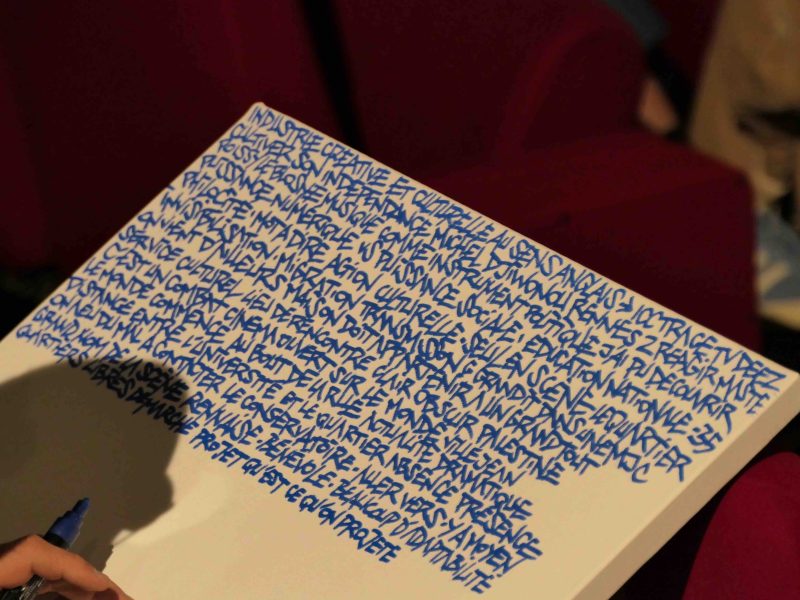 INDUSTRIE CRÉATIVE ET CULTURELLE AU SENS ANGLAIS > OCTRAGE TV DEEZ
CULTIVER SON INDÉPENDANCE MICHEL DJIMONOU RENNES 2 RÉAGIR
POSSY FÉROSNE MUSIQUE COMME INSTRUMENT POÉTIQUE J'AI PU DÉCOUVRIR
PUISSANCE NUMÉRIQUE VS PUISSANCE SOCIALE ÉDUCATION NATIONALE
PHILO CITÉ MOT À DIRE ACTION CULTURELLE SEUL EN SCÈNE LE QUARTIER
INVISIBILISATION MIGRATION TRANSMISSION GRANDIT DANS UNE MJC
ON VIENT D'AILLEURS MAISON DOIT APPARTENIR À UN GRAND TOUT
SERVICE CULTUREL LIEU DE RENCONTRE CLAIR OBSCUR PALESTINE
C'EST UN COMBAT CINÉMA OUVERT SUR LE MONDE VILLEJEAN
LE MONDE COMMENCE AU BOUT DE LA RUE ACTUALITÉ DRAMATIQUE
DISTANCE ENTRE L'UNIVERSITÉ ET LE QUARTIER ABSENCE PRÉSENCE
ON A EU DU MAL À CONTACTER LE CONSERVATOIRE. ALLER VERS. Y A MOYEN
GRAND NOM DE LA SCÈNE RENNAISE. BÉNÉVOLE. BEAUCOUP D'IDENTABILITÉ
QUARTIERS LIBRES DÉMARCHE PROJET QU'EST CE QU'ON PROJETE